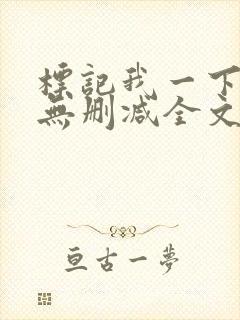 標記我一下
無刪減全文
亘古一夢